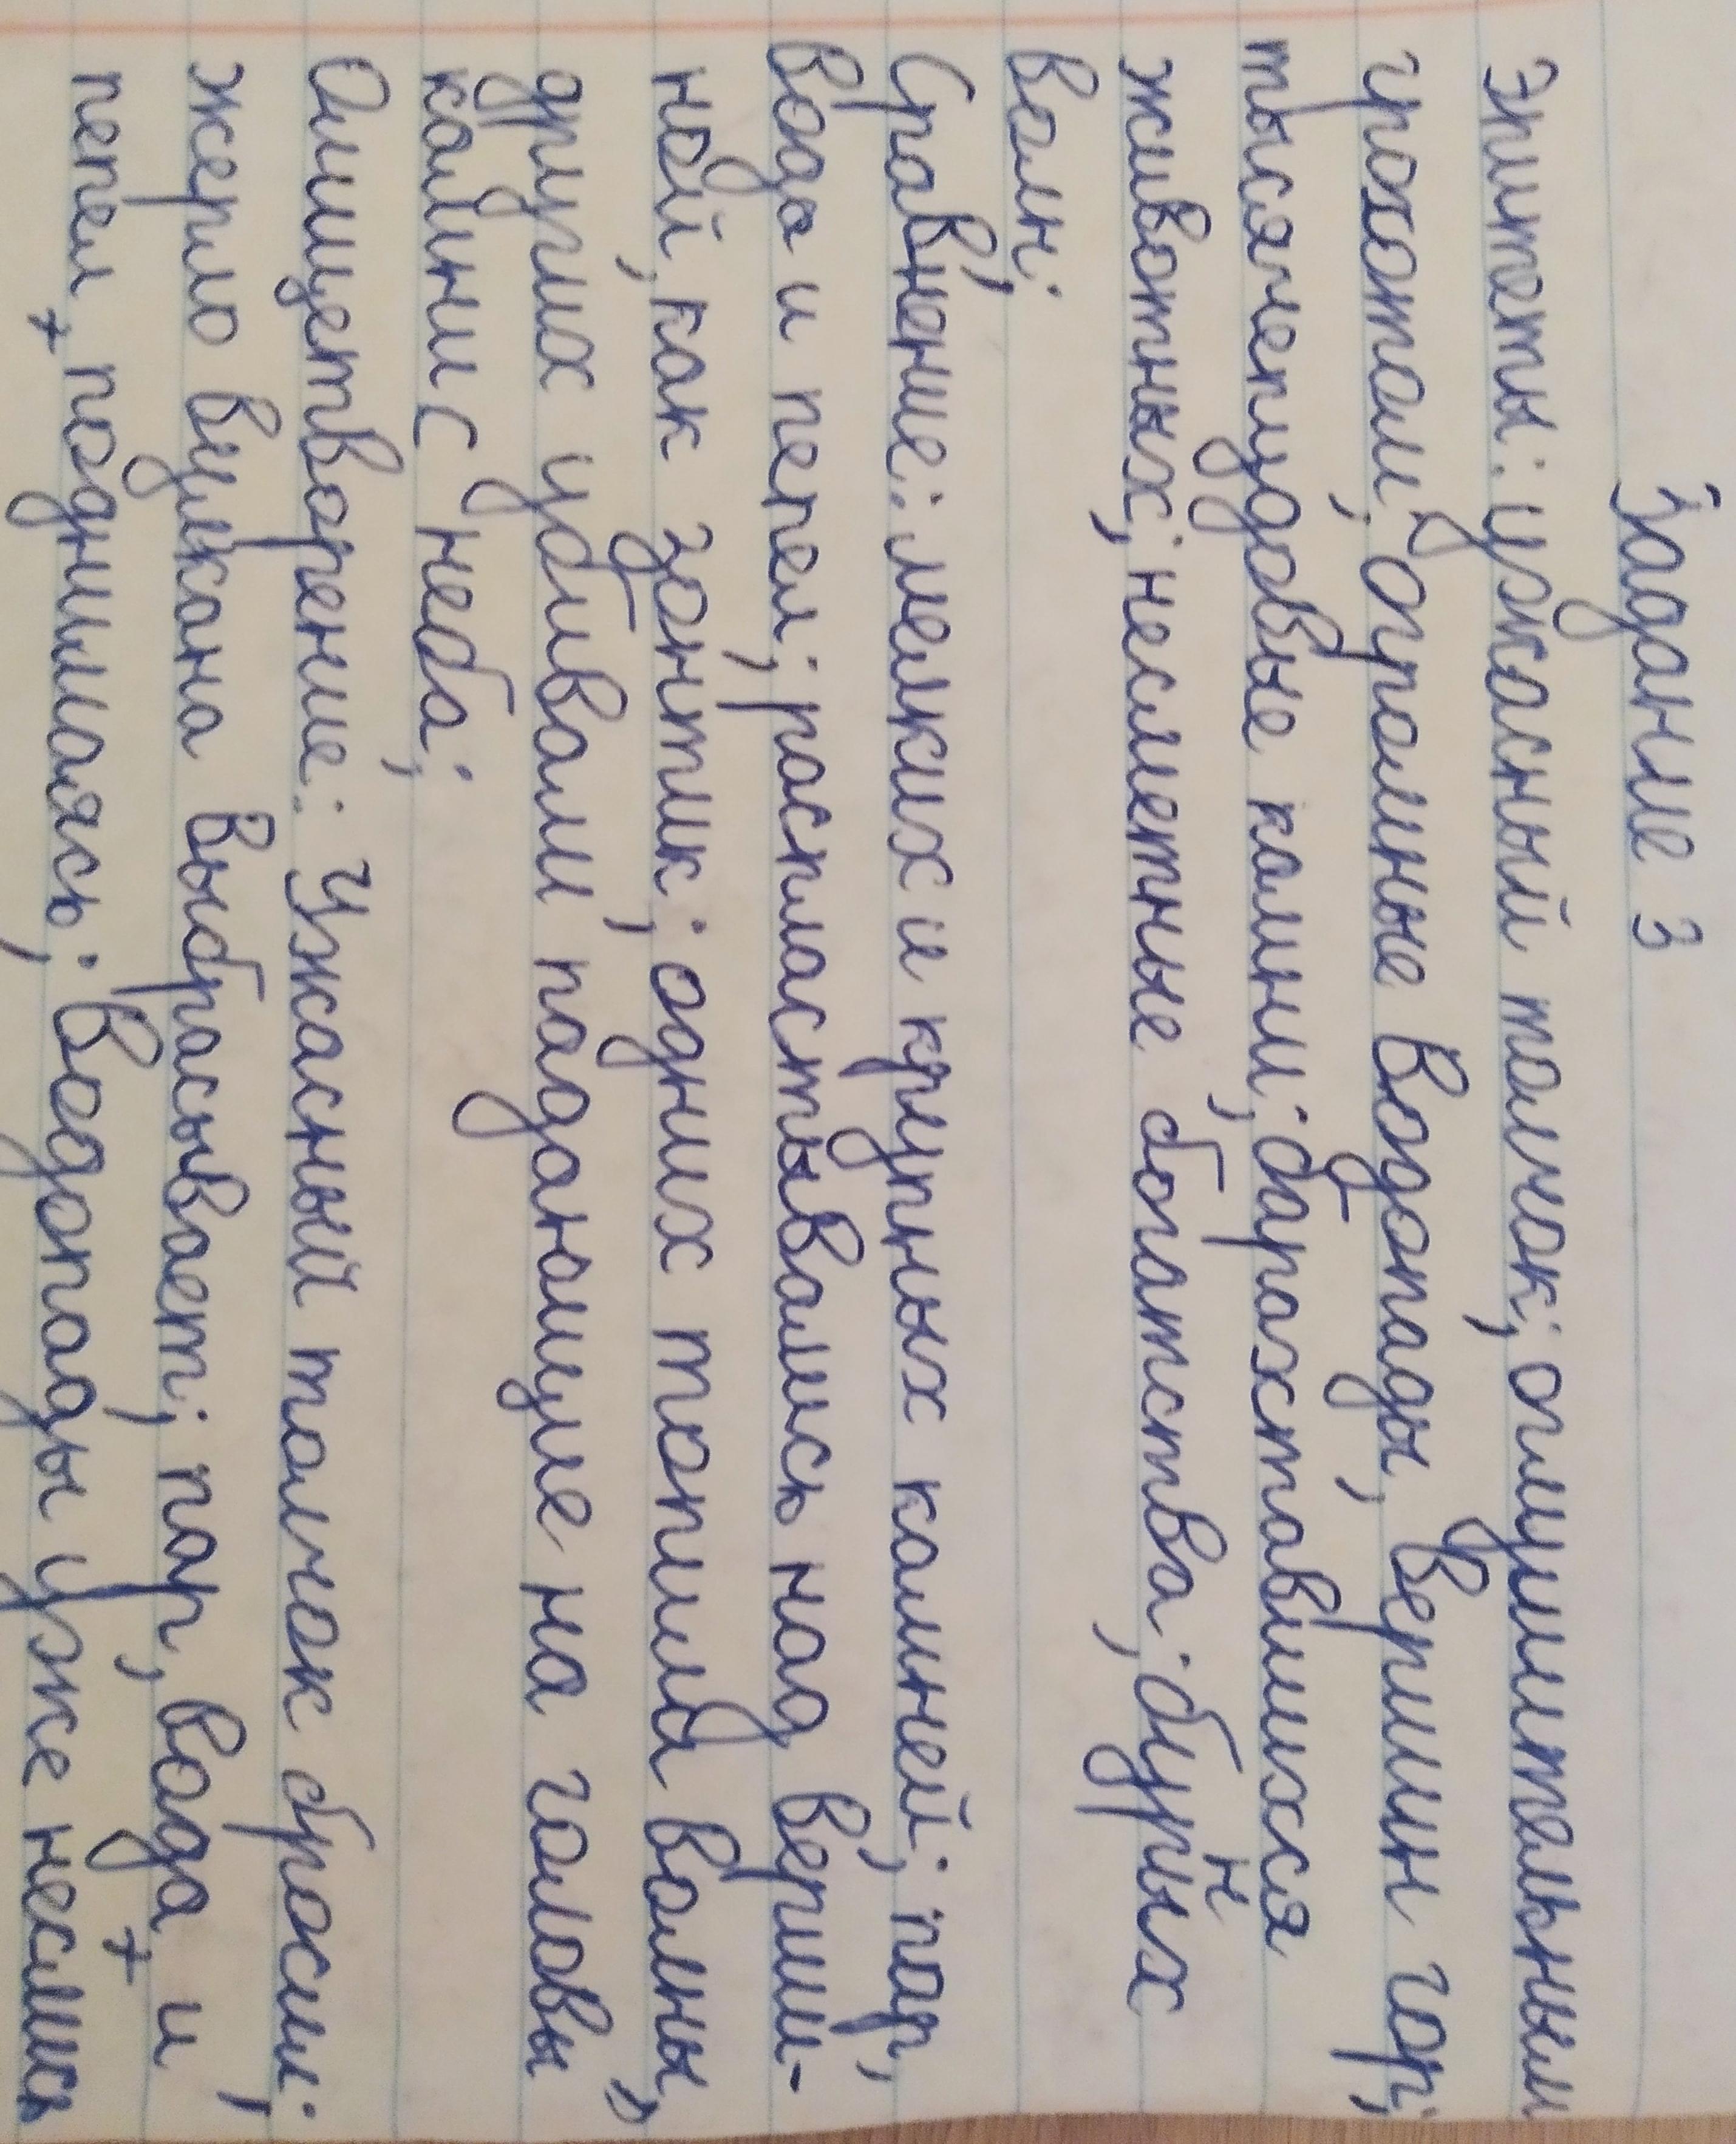 Задание 3
Эпитеты: ужасный толчок; оглушительным
грохотом; огромные водопады; вершин гор;
тысячепудовые камни; барахставшихся
животных; несметные богатства; бурных
волн;
Сравнение: мелких и крупных камней; пар,
вода и пепел; распластывались над верши-
ной, как зонтик; одних топила волны,
других убивали падающие на головы
камни с неба;
Олицетворение: Ужасный толчок бросил;
жерло вулкана выбрасывает; пар, вода и
пепел, поднимаясь; Водопады уже неслись